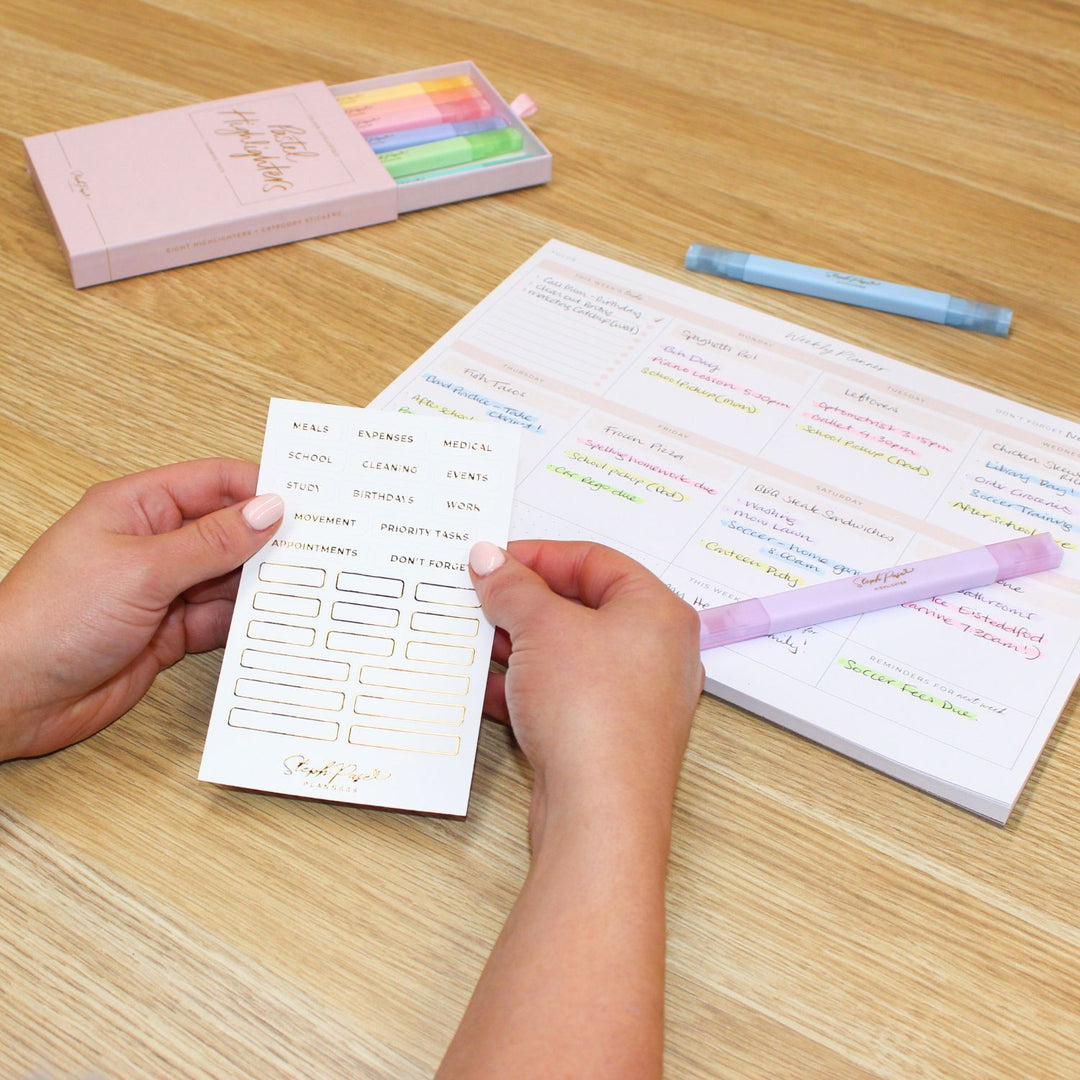 Pastel
Highlighters
EIGHT HIGHLIGHTERS + CATEGORY STICKERS
MEALS
EXPENSES
MEDICAL
SCHOOL
CLEANING
EVENTS
STUDY
BIRTHDAYS
WORK
MOVEMENT
PRIORITY TASKS
APPOINTMENTS
DON'T FORGET
Steph Pase
PLANNERS
Weekly Planner
THIS WEEK'S
Call Mum - Birthday
clean out Pantry
marketing Catchup (wed)
MONDAY
Spaghetti Bol
Bin Day
Piano Lesson 5:30pm
School Pickup (Mum)
TUESDAY
Leftovers
Optometrist 3:15pm
Ballet 4:30pm
School Pickup (Dad)
DON'T FORGET
WEDNES
Chicken Skew
Library Day!
Order Groceries
Soccer Training
After School
THURSDAY
Fish Tacos
Band Practice - Take
Clarinet!
After School
FRIDAY
Frozen Pizza
Spelling Homework due
School Pickup (Dad)
Car Rego due
SATURDAY
BBQ Steak Sandwiches
Washing
Mow Lawn
Soccer - home
8:00am
Canteen Duty
THIS WEEK
for
family!
athrooms
ce Eisteddfod
arrive 7:30am!)
REMINDERS FOR next week
Soccer Fees Due
Steph Pase
Steph Pase